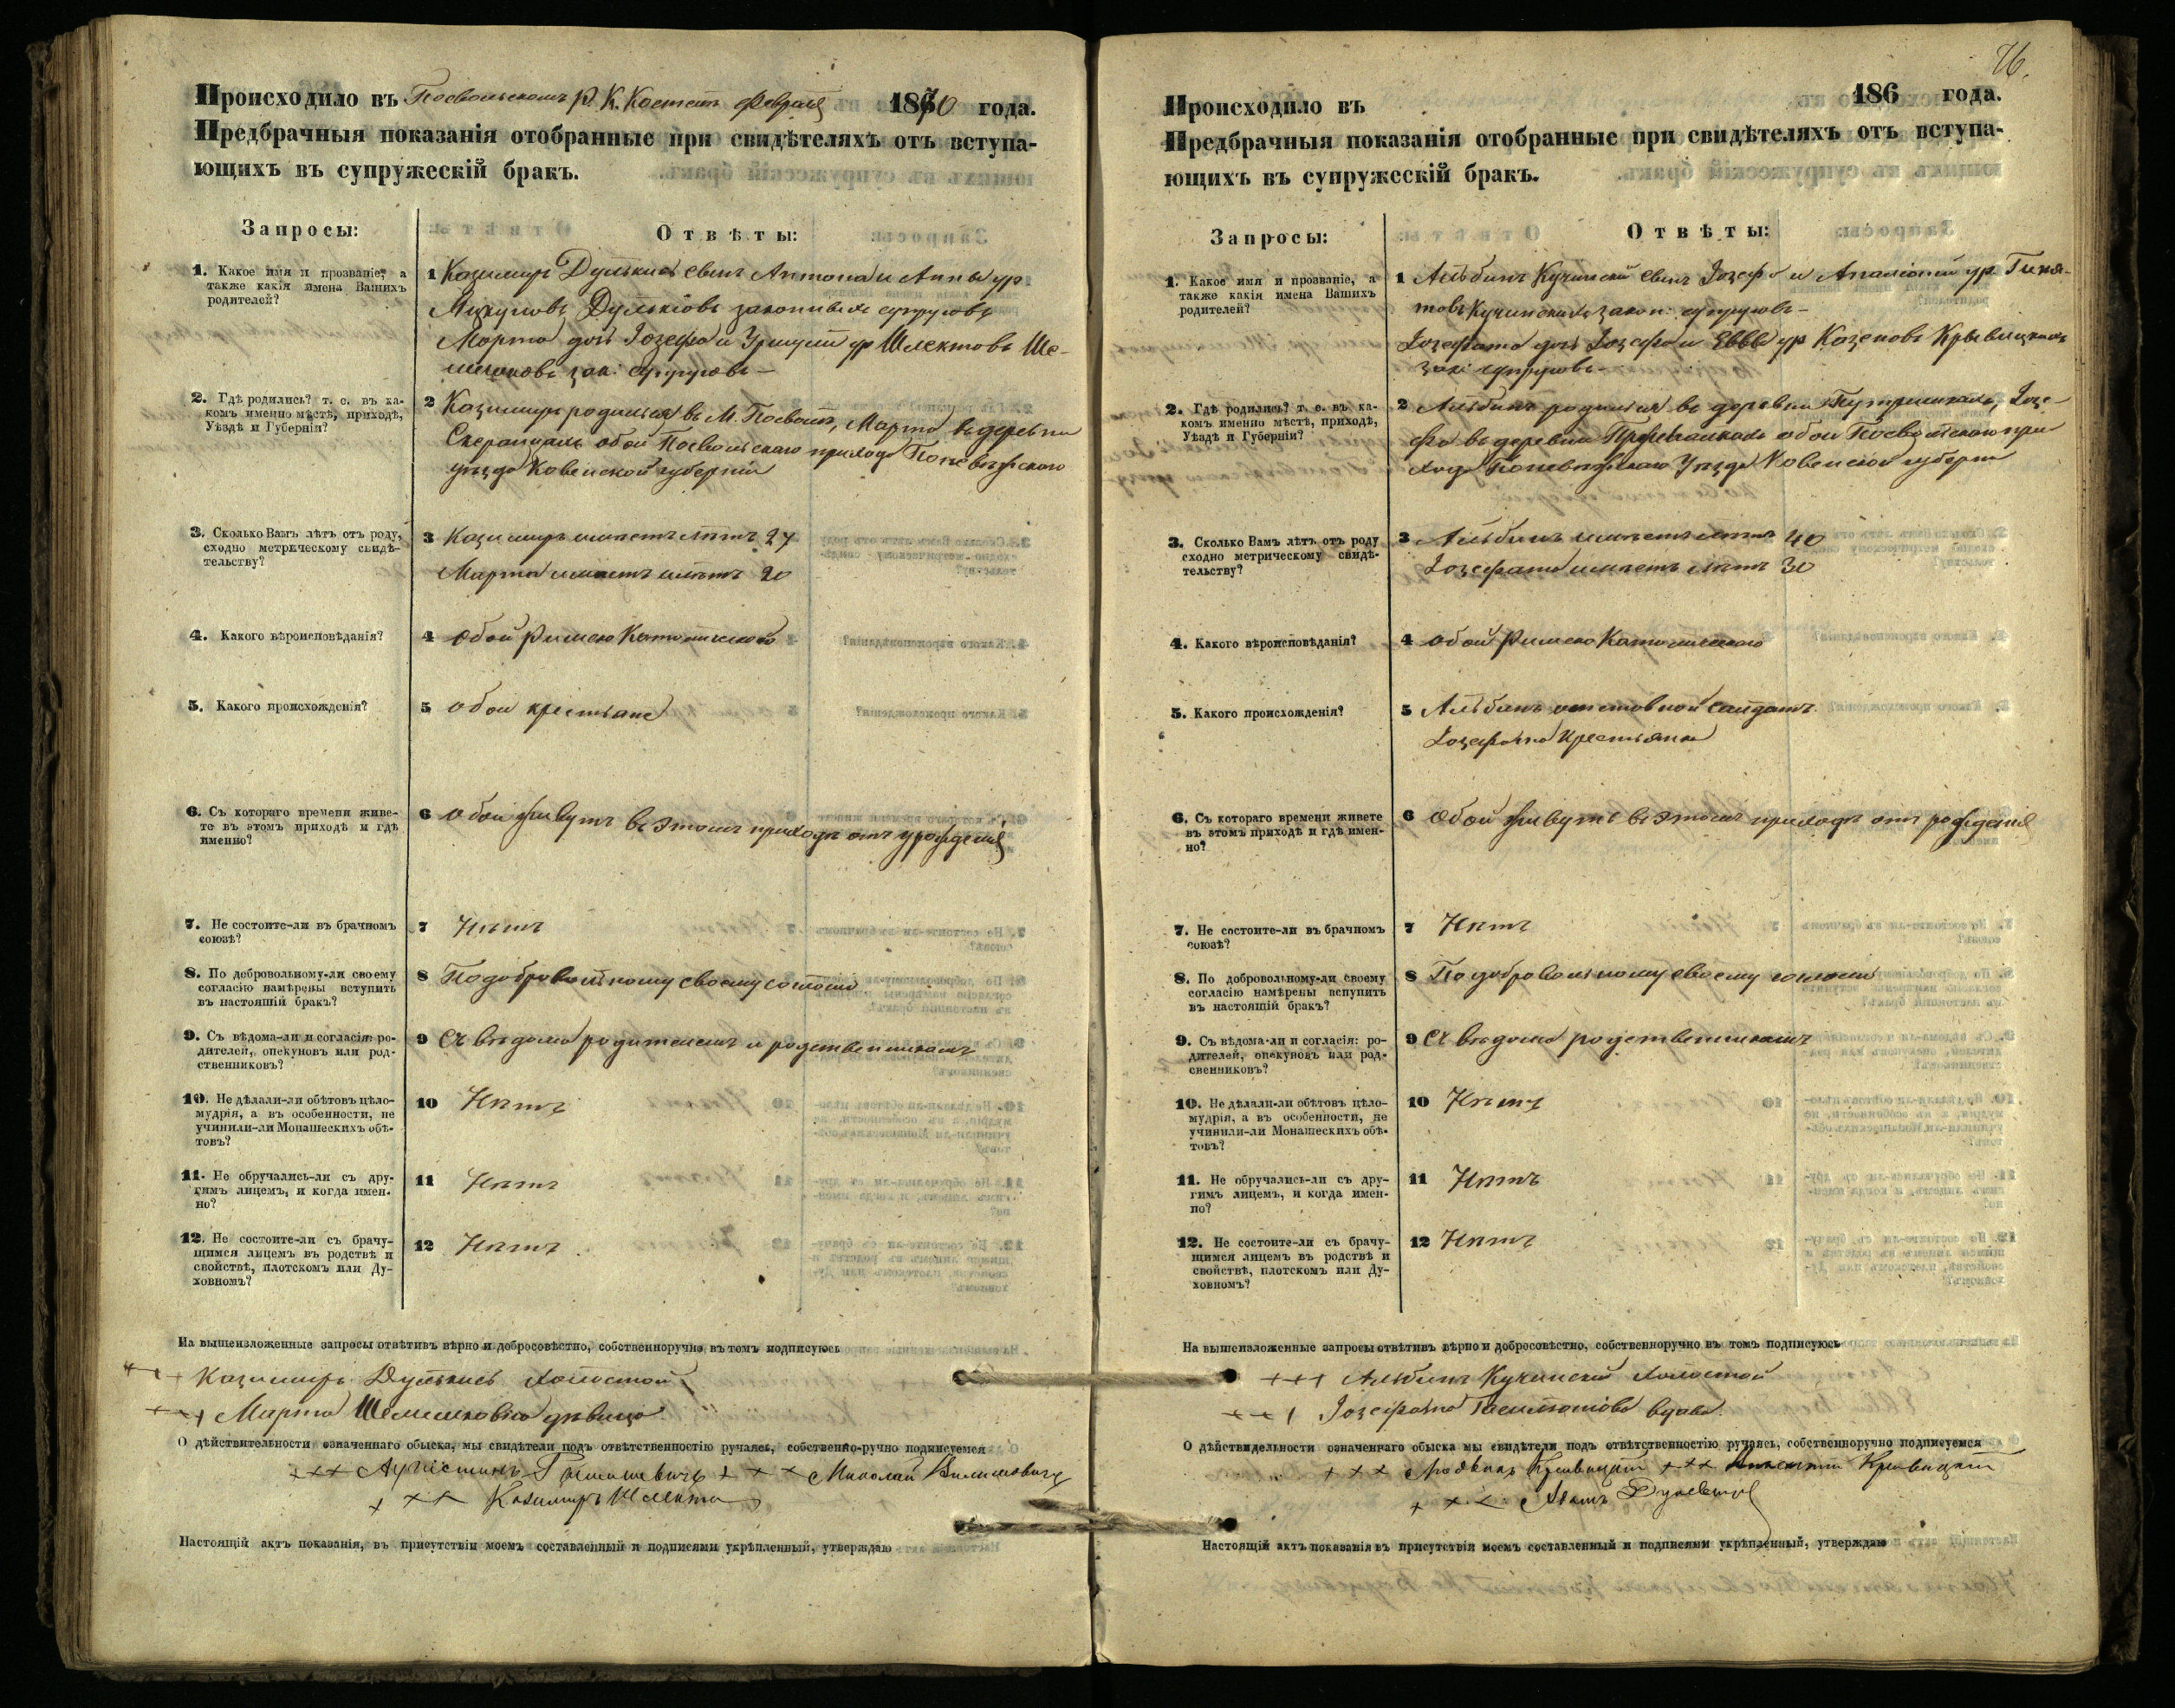 Происходило въ Посвольскомъ Р. К. Костелѣ февраля 1870 года.
Предбрачныя показанія отобранные при свидѣтеляхъ отъ вступа-
ющихъ въ супружескій бракъ.
Запросы:
Отвѣты:
1. Какое имя и прозваніе, а
также какія имена Вашихъ
родителей?
1 Казимиръ Дулькисъ сынъ Антона и Анны ур.
Дулькіовъ законныхъ супруговъ
Марта дочь Іозефа и Уршули ур Шлектовъ Ше-
зак: супруговъ
2. Гдѣ родились? т. е. въ ка-
комъ именно мѣстѣ, приходѣ,
Уѣздѣ и Губерніи?
2 Казимиръ родился въ М. Посволѣ, Марта въ деревни
обои Посвольскаго прихода Поневѣжскаго
уѣзда Ковенской губерніи
3. Сколько Вамъ лѣтъ отъ роду,
сходно метрическому свидѣ-
тельству?
3 Казимиръ имѣетъ лѣтъ 27
Марта имѣетъ лѣтъ 20
4. Какого вѣроисповѣданія?
4 Обои Римско Католическаго
5. Какого происхожденія?
5 Обои крестьяне
6. Съ котораго времени живе-
те въ этомъ приходѣ и гдѣ
именно?
6 Обои живутъ въ этомъ приходѣ отъ урожденія
7. Не состоите-ли въ брачномъ
союзѣ?
7 Нѣтъ
8. По добровольному-ли своему
согласію намѣрены вступить
въ настоящій бракъ?
8 По добровольному своему согласію
9. Съ вѣдома-ли и согласія: ро-
дителей, опекуновъ или род-
ственниковъ?
9 Съ вѣдома родителей и родственниковъ
10. Не дѣлали-ли обѣтовъ цѣло-
мудрія, а въ особенности, не
учинили-ли Монашескихъ обѣ-
товъ?
10 Нѣтъ
11. Не обручались-ли съ дру-
гимъ лицемъ, и когда имен-
но?
11 Нѣтъ
12. Не состоите-ли съ брачу-
щимся лицемъ въ родствѣ и
свойствѣ, плотскомъ или Ду-
ховномъ?
12 Нѣтъ
На вышеизложенные запросы отвѣтивъ вѣрно и добросовѣстно, собственноручно въ томъ подписуюсь
+++ Казимиръ Дулькисъ холостой
+++ Марта дѣвица
О дѣйствительности означеннаго обыска, мы свидѣтели подъ отвѣтственностію ручаясь, собственно-ручно подписуемся
+++ Августинъ +++ Миколай
+++ Казимиръ Шлекта
Настоящій актъ показанія, въ присутствіи моемъ составленный и подписями укрѣпленный, утверждаю
76.
Происходило въ 186 года.
Предбрачныя показанія отобранные при свидѣтеляхъ отъ вступа-
ющихъ въ супружескій бракъ.
Запросы:
Отвѣты:
1. Какое имя и прозваніе, а
также какія имена Вашихъ
родителей?
1 Альбинъ Кучинскій сынъ Іозефа и Апалоніи ур.
Кучинскихъ закон: супруговъ
Іозефата дочь Іозефа и Еввы ур Крывицкихъ
зак: супруговъ
2. Гдѣ родились? т. е. въ ка-
комъ именно мѣстѣ, приходѣ,
Уѣздѣ и Губерніи?
2 Альбинъ родился въ деревни Іозе-
фа въ деревни обои Посвольскаго при
хода Поневѣжскаго Уѣзда Ковенской губерніи
3. Сколько Вамъ лѣтъ отъ роду
сходно метрическому свидѣ-
тельству?
3 Альбинъ имѣетъ лѣтъ 40
Іозефата имѣетъ лѣтъ 30
4. Какого вѣроисповѣданія?
4 Обои Римско Католическаго
5. Какого происхожденія?
5 Альбинъ отставной салдатъ
Іозефата крестьянка
6. Съ котораго времени живете
въ этомъ приходѣ и гдѣ имен-
но?
6 Обои живутъ въ этомъ приходѣ отъ рожденія
7. Не состоите-ли въ брачномъ
союзѣ?
7 Нѣтъ
8. По добровольному-ли своему
согласію намѣрены вспупить
въ настоящій бракъ?
8 По добровольному своему согласію
9. Съ вѣдома-ли и согласія: ро-
дителей, опекуновъ или род-
свенниковъ?
9 Съ вѣдома родственниковъ
10. Не дѣлали-ли обѣтовъ цѣло-
мудрія, а въ особенности, не
учинили-ли Монашескихъ обѣ-
товъ?
10 Нѣтъ
11. Не обручались-ли съ дру-
гимъ лицемъ, и когда имен-
но?
11 Нѣтъ
12. Не состоите-ли съ брачу-
щимся лицемъ въ родствѣ и
свойствѣ, плотскомъ или Ду-
ховномъ?
12 Нѣтъ
На вышеизложенные запросы отвѣтивъ вѣрно и добросовѣстно, собственноручно въ томъ подписуюсь
+++ Альбинъ Кучинскій холостой
+++ Іозефата вдова
О дѣйствидельности означеннаго обыска мы свидѣтели подъ отвѣтственностію ручаясь, собственноручно подписуемся
+++ Крывицкій +++ Крывицкій
+++ Адамъ
Настоящій актъ показанія въ присутствія моемъ составленный и подписями укрѣпленный, утверждаю